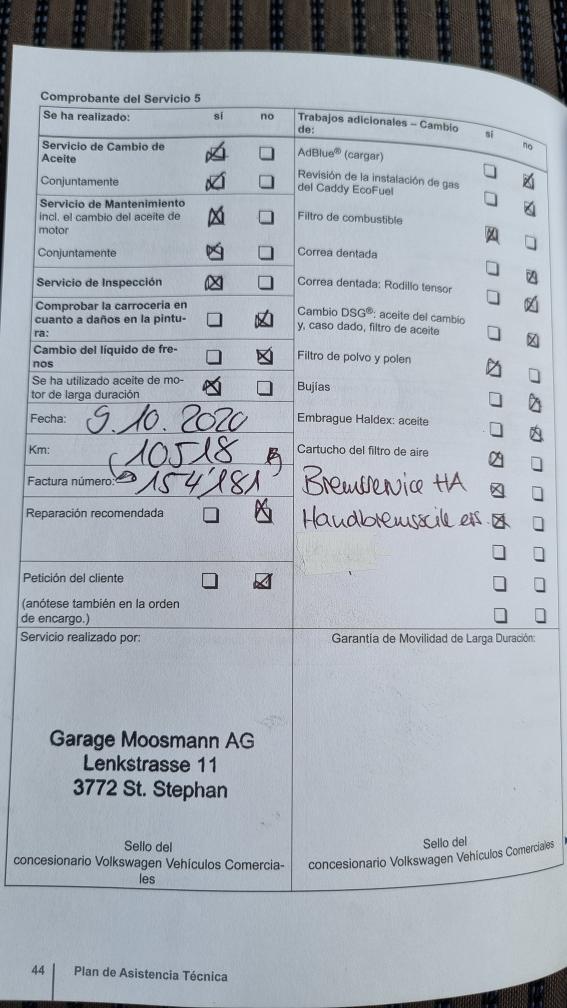 Comprobante del Servicio 5
Se ha realizado: sí no
Servicio de Cambio de
Aceite
Conjuntamente
Servicio de Mantenimiento
incl. el cambio del aceite de
motor
Conjuntamente
Servicio de Inspección
Comprobar la carrocería en
cuanto a daños en la pintu-
ra:
Cambio del líquido de fre-
nos
Se ha utilizado aceite de mo-
tor de larga duración
Fecha: 9.10.2020
Km: 10518
Factura número: 154'181
Reparación recomendada
Petición del cliente
(anótese también en la orden
de encargo.)
Trabajos adicionales – Cambio
de: sí no
AdBlue® (cargar)
Revisión de la instalación de gas
del Caddy EcoFuel
Filtro de combustible
Correa dentada
Correa dentada: Rodillo tensor
Cambio DSG®: aceite del cambio
y, caso dado, filtro de aceite
Filtro de polvo y polen
Bujías
Embrague Haldex: aceite
Cartucho del filtro de aire
Bremsservice HA
Handbremsseile ers.
Servicio realizado por:
Garage Moosmann AG
Lenkstrasse 11
3772 St. Stephan
Sello del
concesionario Volkswagen Vehículos Comercia-
les
Garantía de Movilidad de Larga Duración:
Sello del
concesionario Volkswagen Vehículos Comerciales
44 Plan de Asistencia Técnica